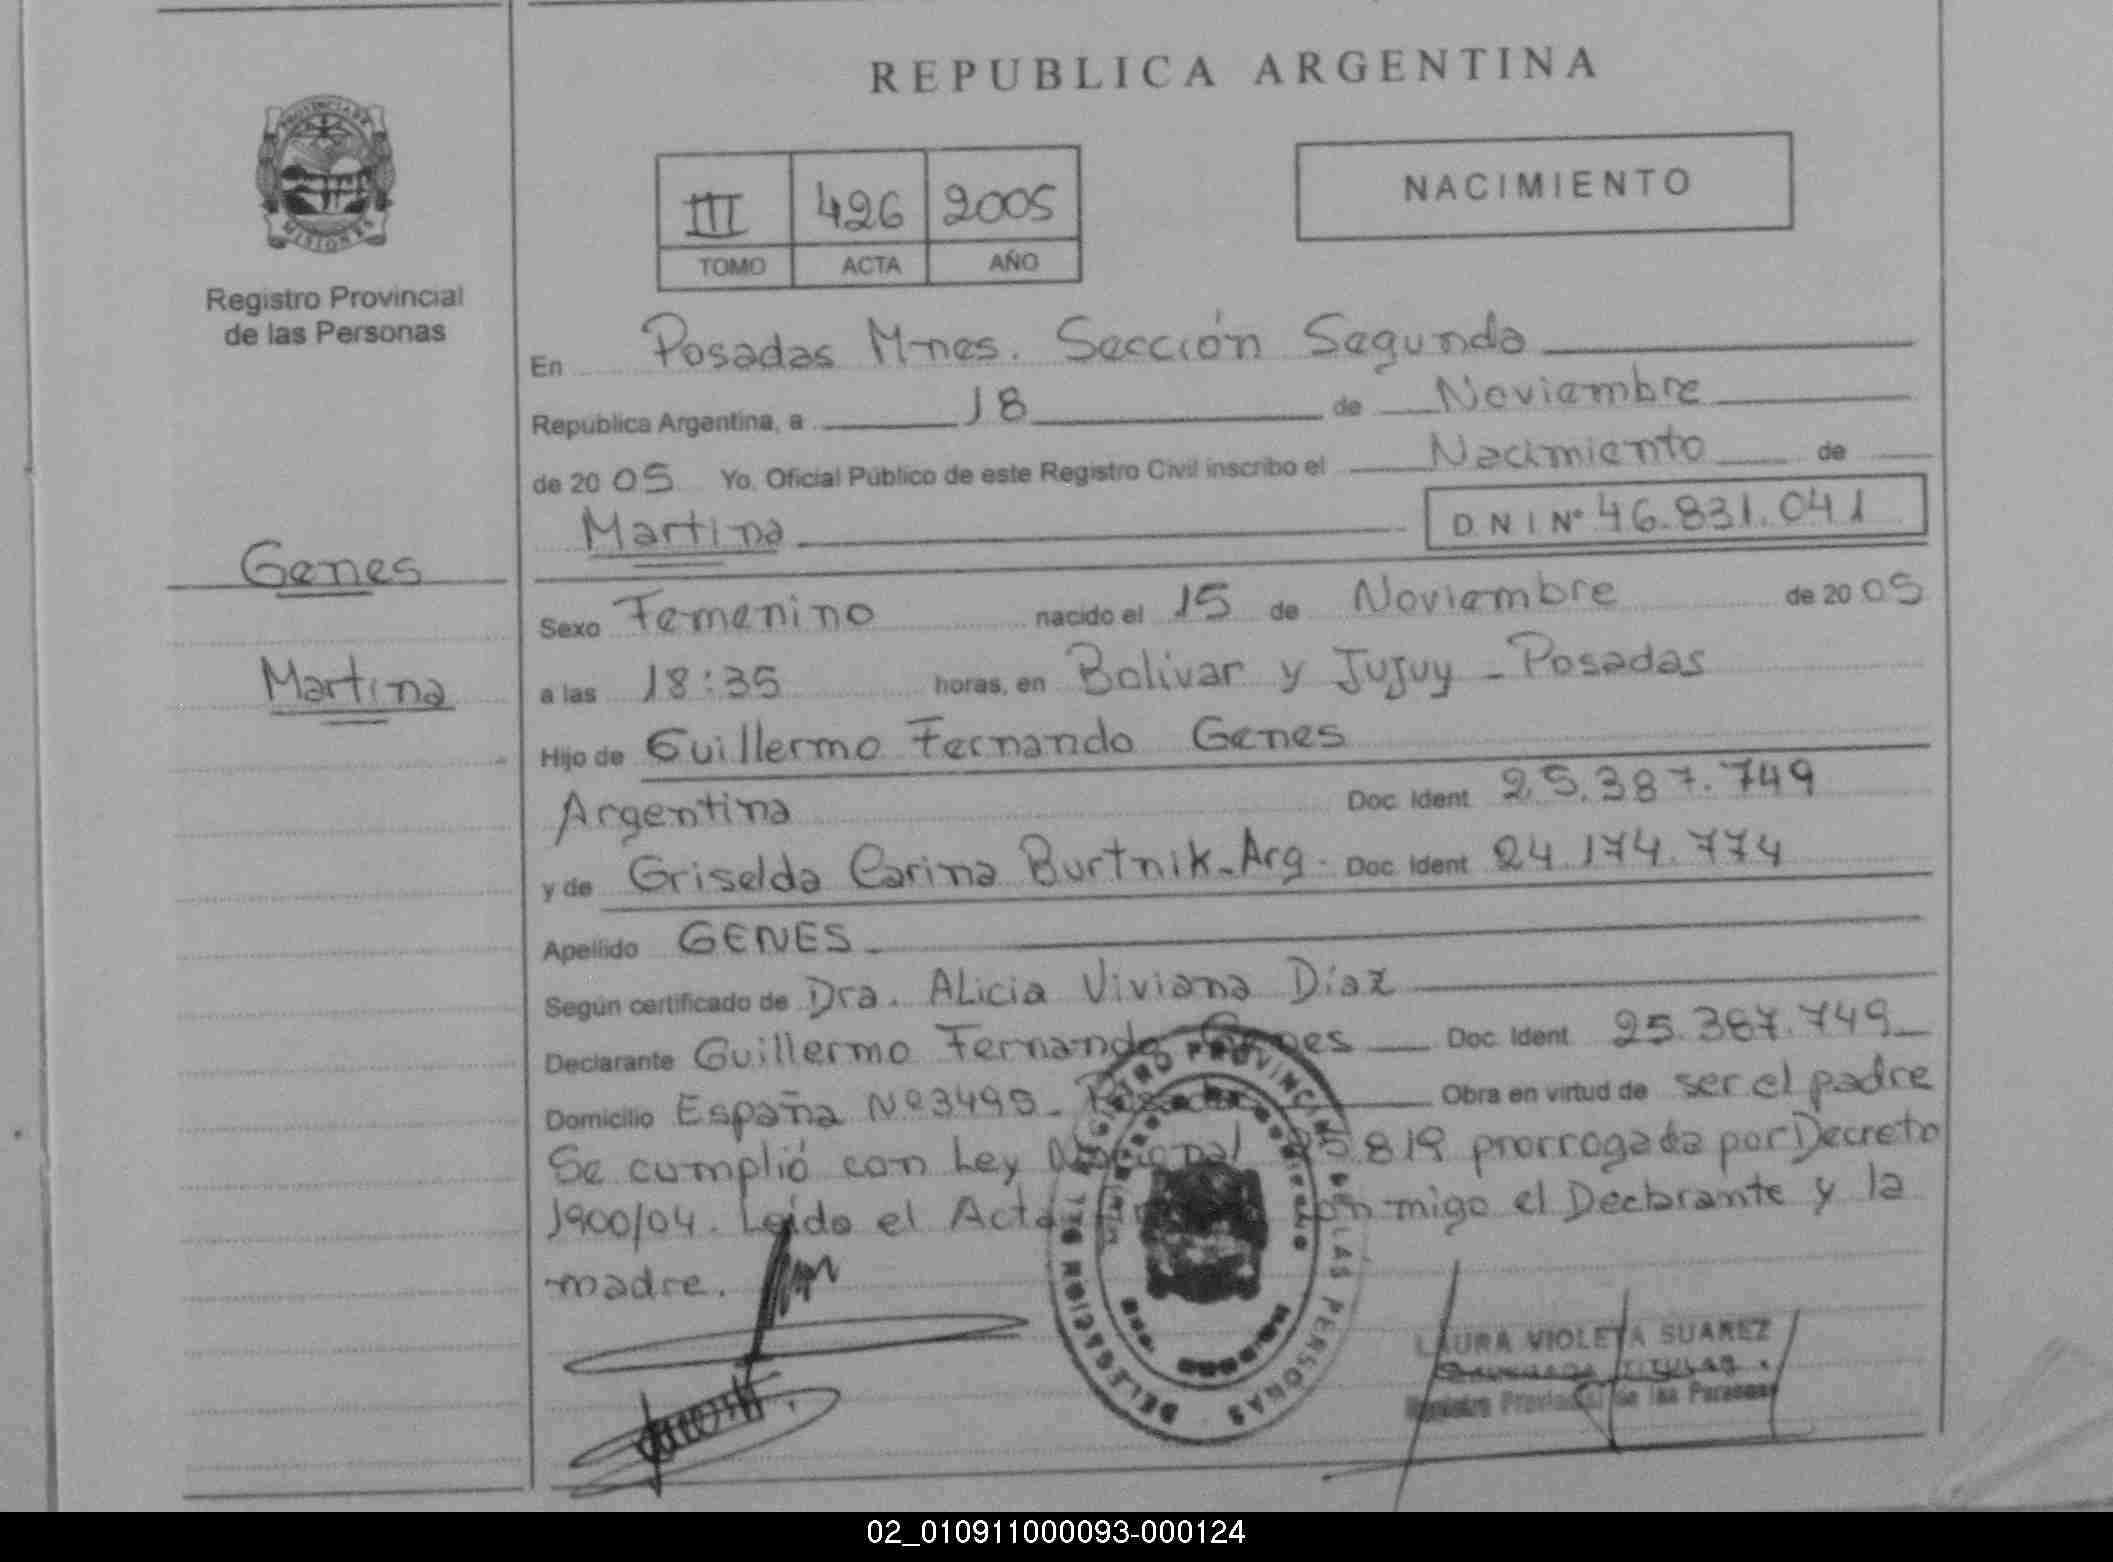 REPUBLICA ARGENTINA
PROVINCIA DE
MISIONES
Registro Provincial
de las Personas
III 426 2005
TOMO ACTA AÑO
NACIMIENTO
En Posadas Mnes. Sección Segunda
Republica Argentina, a 18 de Noviembre
de 2005 Yo, Oficial Público de este Registro Civil inscribo el Nacimiento de
Martina D N I Nº 46.831.041
Genes
Martina
Sexo Femenino nacido el 15 de Noviembre de 2005
a las 18:35 horas, en Bolivar y Jujuy - Posadas
Hijo de Guillermo Fernando Genes
Argentina Doc. Ident 25.387.749
y de Griselda Carina Burtnik-Arg. Doc. Ident 24.174.774
Apellido GENES
Según certificado de Dra. ALicia Viviana Díaz
Declarante Guillermo Fernando Genes Doc. Ident 25.387.749
Domicilio España Nº 3495 - Posadas Obra en virtud de ser el padre
Se cumplió con Ley Nacional 25.819 prorrogada por Decreto
1900/04. Leído el Acta conmigo el Declarante y la
madre.
REGISTRO PROVINCIAL DE LAS PERSONAS
LAURA VIOLETA SUAREZ
TITULAR
Registro Provincial de las Personas
02_010911000093-000124